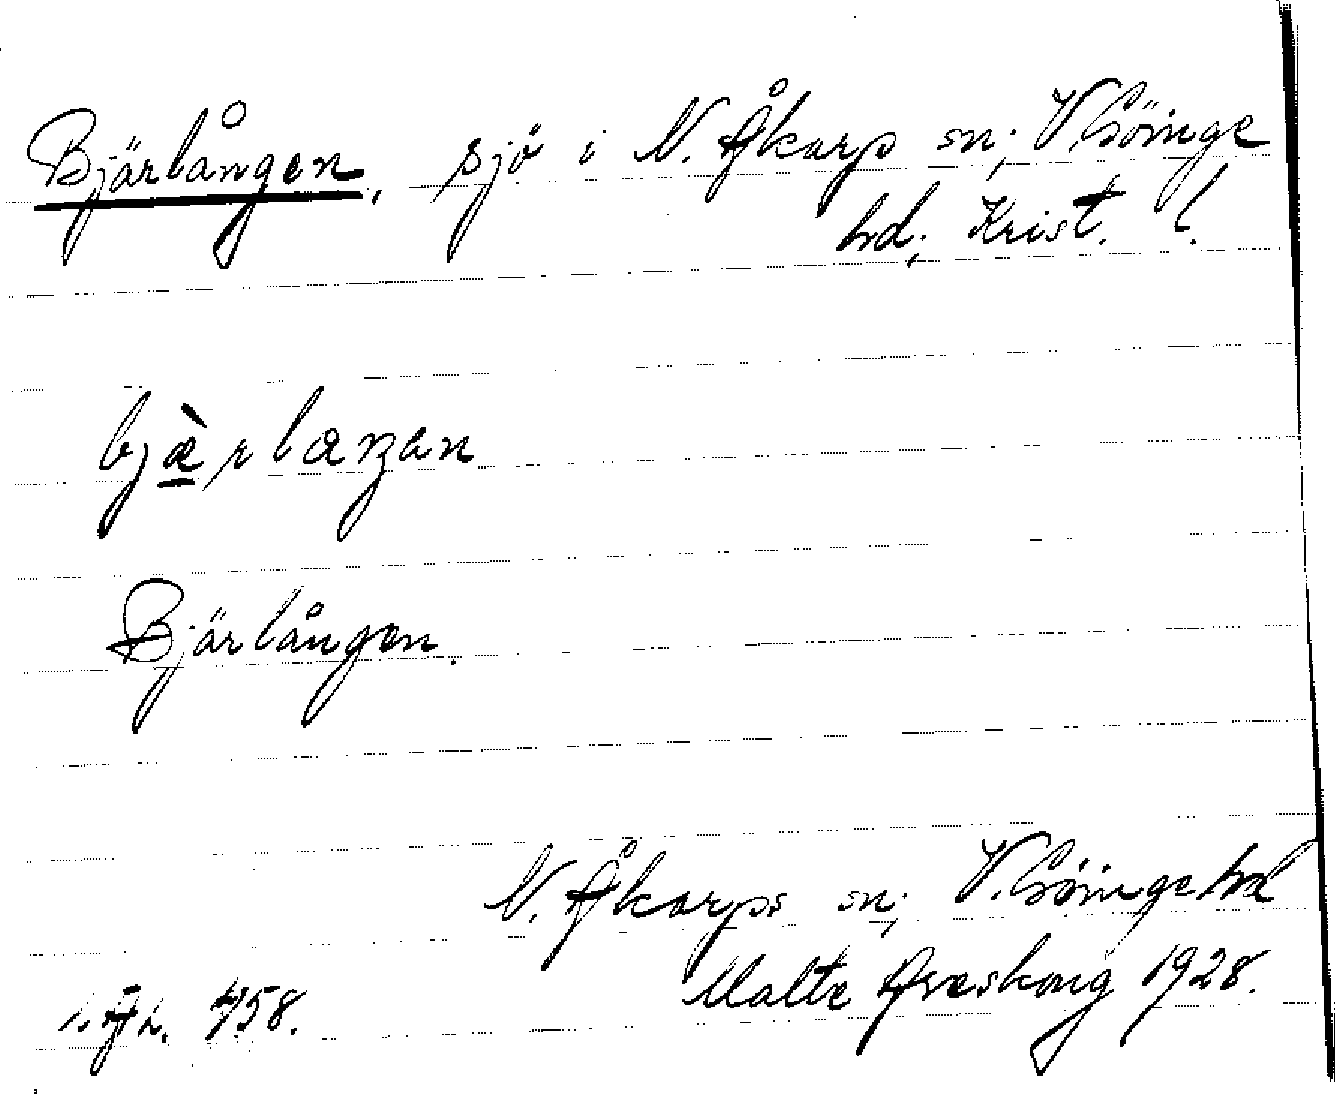 Bjärlången, sjö i N. Åkarp sn; V. Göinge
hd; Krist. l.
bjæ̀rlaŋan
Bjärlången.
N. Åkarps sn; V. Göinge hd
Malte Areskoug 1928.
758.